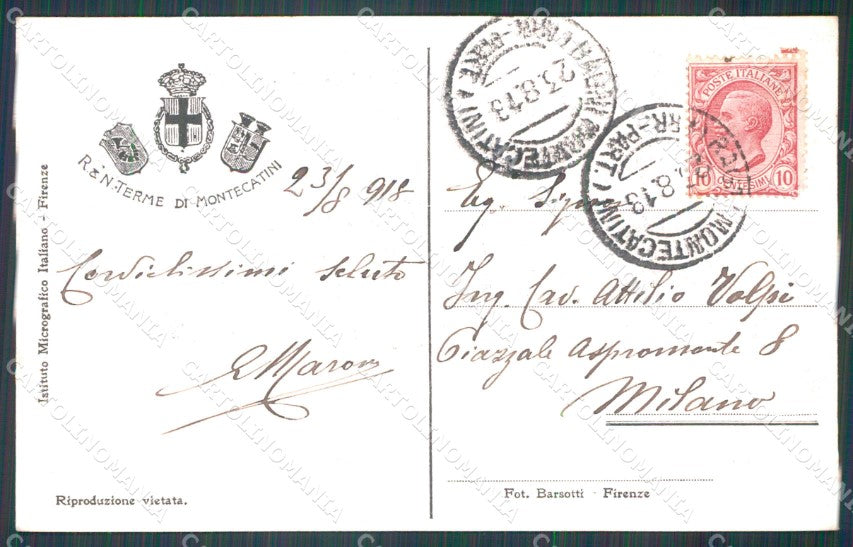 R.R. N. TERME DI MONTECATINI
23/8 918
Cordialissimi saluti
Istituto Micrografico Italiano - Firenze
Riproduzione vietata.
MONTECATINI
23.8.18
MONTECATINI
8.18
POSTE ITALIANE
10 CENTESIMI 10
Eg. Signor
Ing. Cav. Attilio Volpi
Piazzale Aspromonte 8
Milano
Fot. Barsotti - Firenze
CARTOLINOMANIA